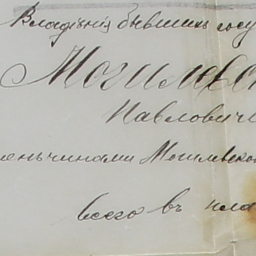 Владѣнія бывшихъ госу
Могилевс
Павлович
еньчинами Могилевской
всего въ